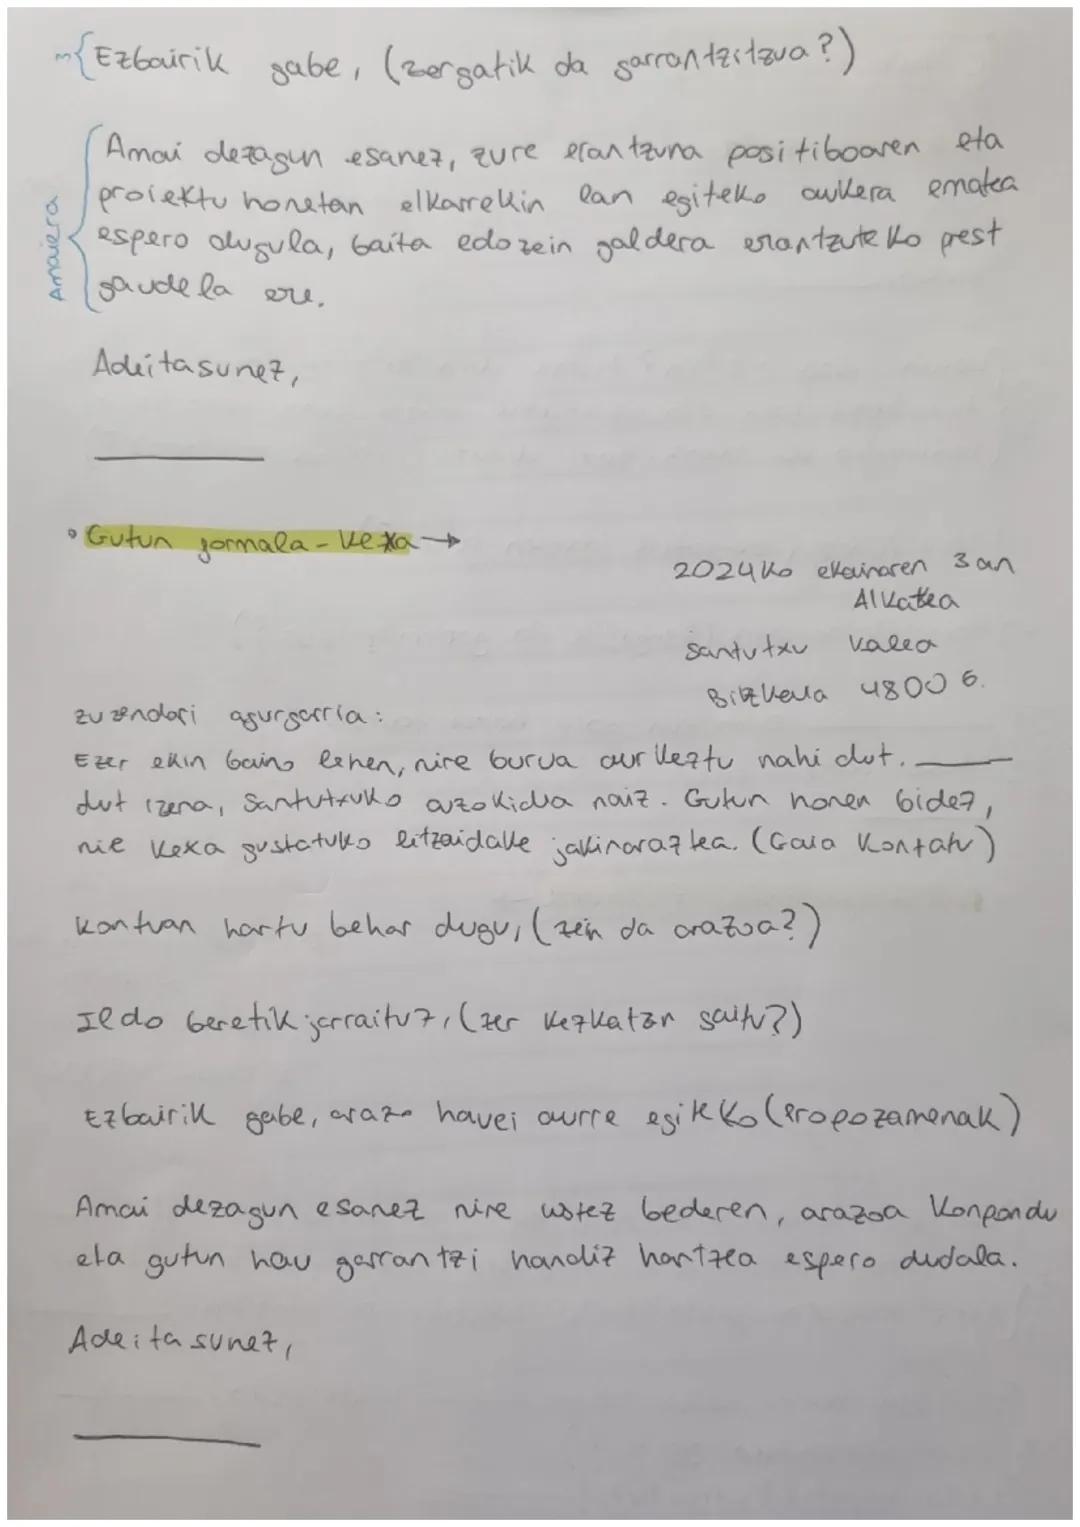 Ezbairik gabe, (zergatik da garrantzitzua?)
Amai dezagun esanez, zure erantzuna positiboaren eta
proiektu honetan elkarrekin lan egiteko aukera ematea
espero dugula, baita edozein galdera erantzuteko prest
gaudela ere.
Amaiera
Adeitasunez,
• Gutun formala - kexa →
2024ko ekainaren 3an
Alkatea
Santutxu kalea
Bizkaia 48006.
zuzendari agurgarria:
Ezer ekin baino lehen, nire burua aurkeztu nahi dut. ____
dut izena, Santutxuko auzokidea naiz. Gutun honen bidez,
nie kexa gustatuko litzaidake jakinaraztea. (Gaia kontatu)
kontuan hartu behar dugu, (zein da arazoa?)
Ildo beretik jarraituz, (zer kezkatzen saitu?)
Ezbairik gabe, arazo hauei aurre egiteko (Propozamenak)
Amai dezagun esanez nire ustez bederen, arazoa konpondu
eta gutun hau garrantzi handiz hartzea espero dudala.
Adeitasunez,